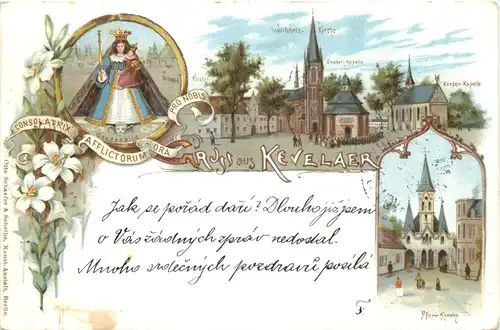 Wallfahrts-Kirche
Gnaden-Kapelle
Kerzen-Kapelle
Kloster
CONSOLATRIX
AFFLICTORUM
ORA
PRO NOBIS
GRUSS aus KEVELAER
Jak se pořád daří? Dlouho již jsem
o Vás žádných zpráv nedostal.
Mnoho srdečných pozdravů posílá
F.
Pfarr-Kirche
Otto Schaefer & Scheibe, Kunst-Anstalt, Berlin.